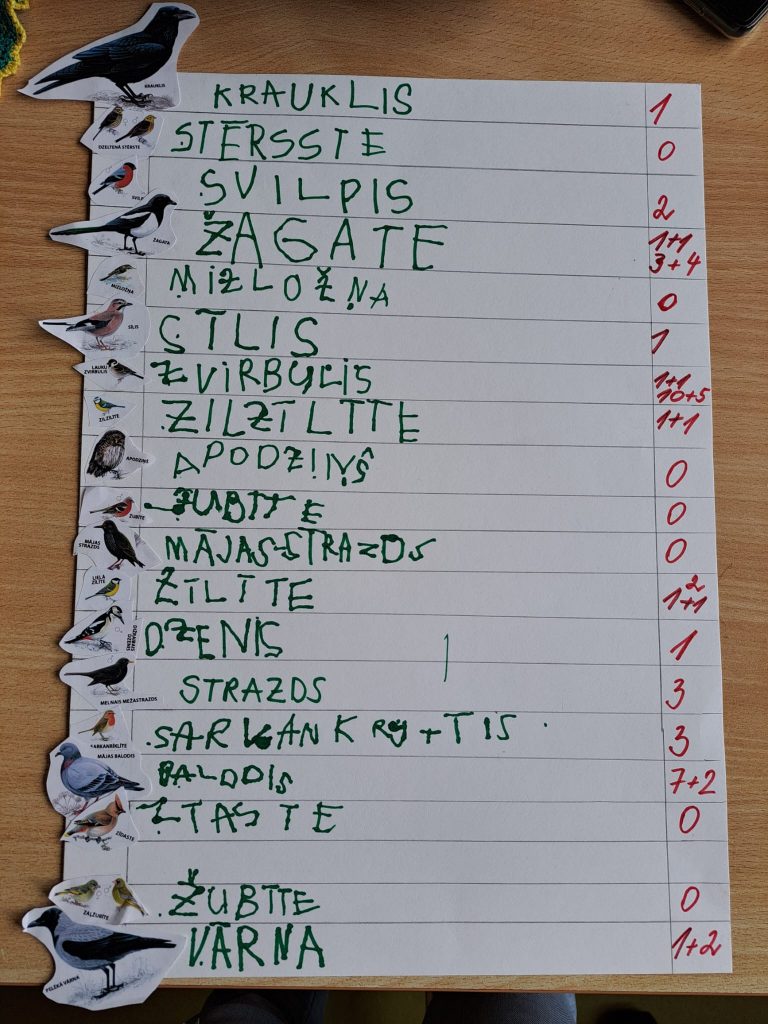 KRAUKLIS
KRAUKLIS 1
DZELTENĀ STĒRSTE
STĒRSSTE 0
SVILPIS 2
ŽAGATA
ŽAGATE 1+1
3+4
MIZLOŽŅA
MIZLOŽŅA 0
SĪLIS
SĪLIS 1
LAUKU ZVIRBULIS
ZVIRBULIS 1+1
10+5
ZILZĪLĪTE
ZILZĪLĪTE 1+1
APODZIŅŠ
APODZIŅŠ 0
ŽUBĪTE
ŽUBĪTE 0
MĀJAS STRAZDS
MĀJAS-STRAZDS 0
LIELĀ ZĪLĪTE
ZĪLĪTE 1+1 2
DIŽRAIBAIS DZENIS
DZENIS 1
MELNAIS MEŽASTRAZDS
STRAZDS 3
SARKANRĪKLĪTE
SARKANKRŪTIS 3
MĀJAS BALODIS
BALODIS 7+2
ZĪDASTE
ZĪASTE 0
ZAĻŽUBĪTE
ŽUBĪTE 0
PELĒKĀ VĀRNA
VĀRNA 1+2